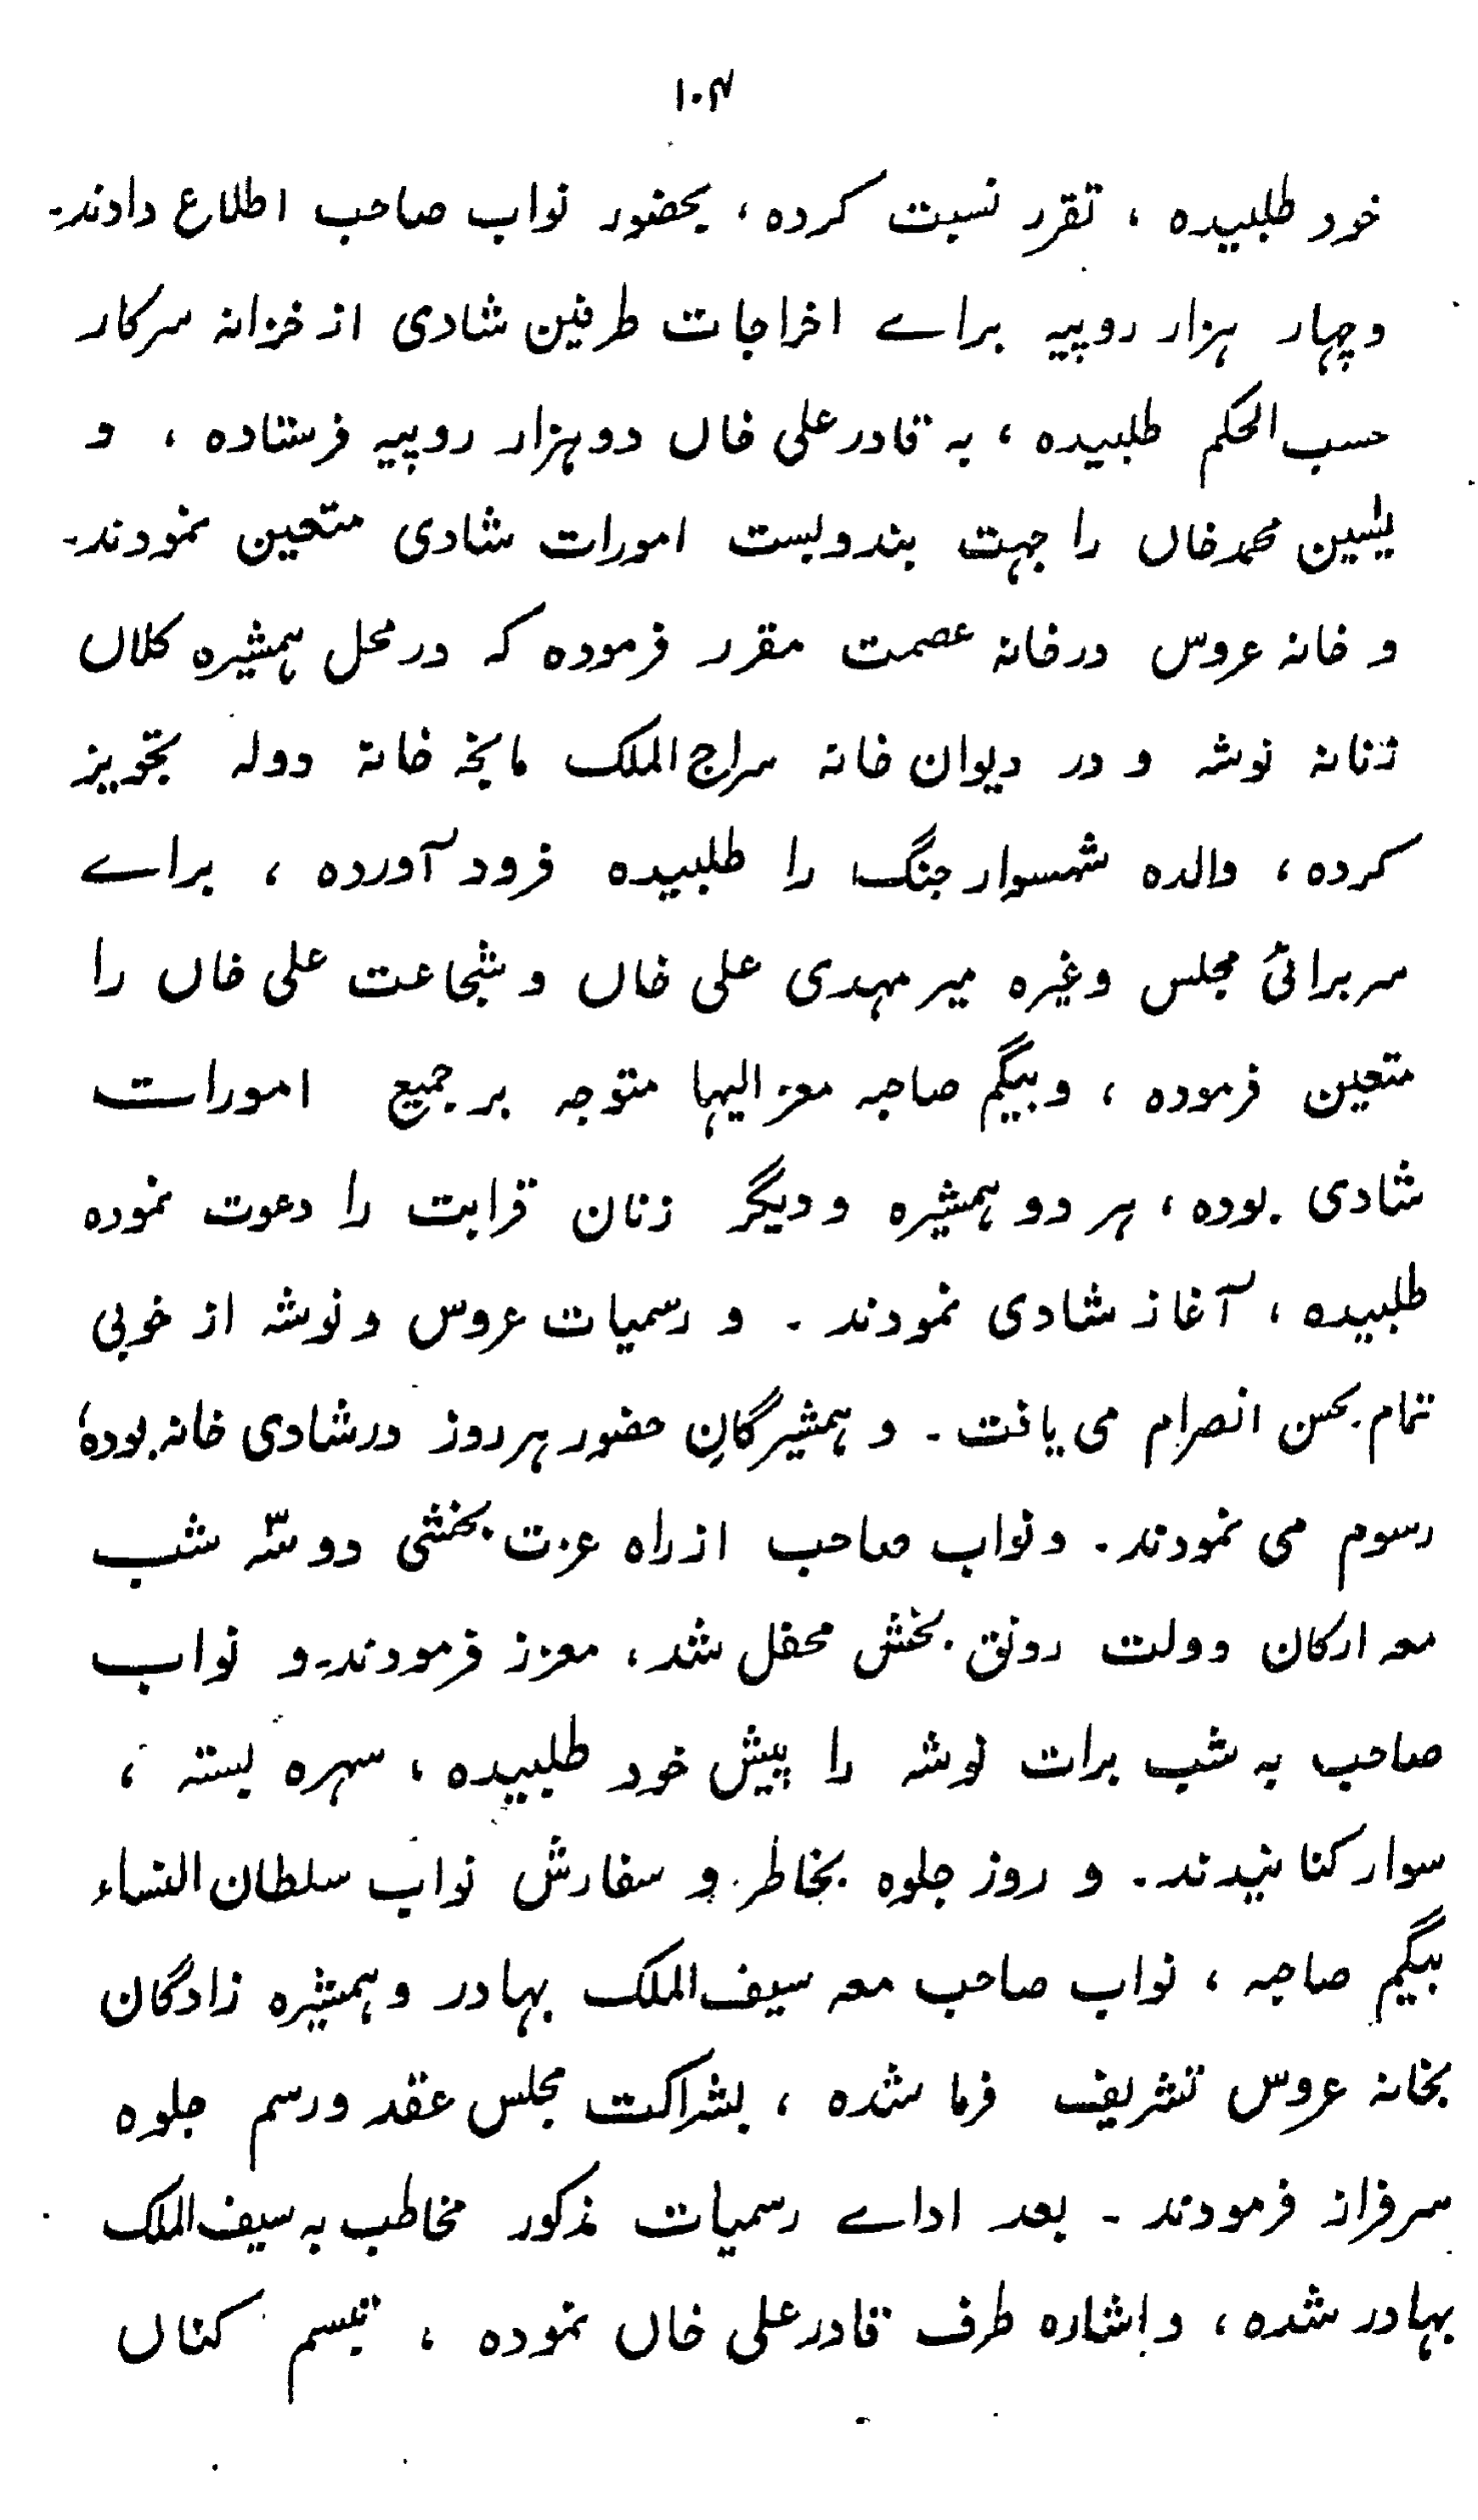 ۱۰۴
خود طلبیده ، تقرر نسبت کرده ، بحضور نواب صاحب اطلاع دادند۔
و چهار هزار روپیه براے اخراجات طرفین شادی از خزانه سرکار
حسب الحکم طلبیده ، به قادر علی خاں دو هزار روپیه فرستاده ، و
یٰسین محمد خاں را جهت بندوبست امورات شادی متعین نمودند۔
و خانه عروس در خانه عصمت مقرر فرموده که در محل همشیره کلاں
زنانه نوشه و در دیوان خانه سراج الملک دوله تجویز
کرده ، والده شهسوار جنگ را طلبیده فرود آورده ، براے
سربرائی مجلس وغیره میر مهدی علی خاں و شجاعت علی خاں را
متعین فرموده ، و بیگم صاحبه معز الیها متوجه بر جمیع امورات
شادی بوده ، هر دو همشیره و دیگر زنان قرابت را دعوت نموده
طلبیده ، آغاز شادی نمودند ۔ و رسمیات عروس و نوشه از خوبی
تمام بحسن انصرام می یافت ۔ و همشیرگانِ حضور هر روز در شادی خانه بوده ،
رسوم می نمودند۔ و نواب صاحب از راه عزت بخشی دو سه شب
معه ارکان دولت رونق بخش محفل شد ، معزز فرمودند۔ و نواب
صاحب به شب برات نوشه را پیش خود طلبیده ، سهره بسته ،
سوار کنانیدند۔ و روز جلوه بخاطر و سفارش نواب سلطان النساء
بیگم صاحبه ، نواب صاحب معه سیف الملک بهادر و همشیره زادگان
بخانه عروس تشریف فرما شده ، بشراکت مجلس عقد و رسم جلوه
سرفراز فرمودند ۔ بعد اداے رسمیات مذکور مخاطب به سیف الملک
بهادر شده ، و اشاره طرف قادر علی خاں نموده ، تبسم کناں